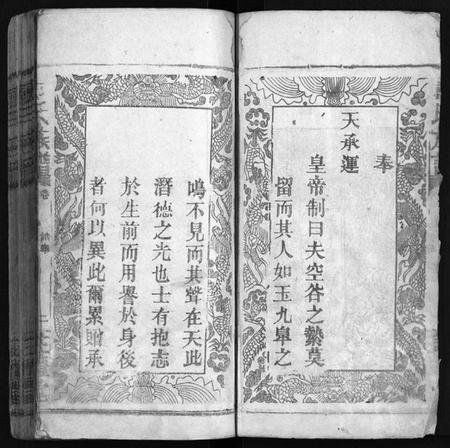 奉
天承運
皇帝制曰夫空谷之縶莫
留而其人如玉九臯之
鳴不見而其聲在天此
潛德之光也士有抱志
於生前而用譽於身後
者何以異此爾累贈承